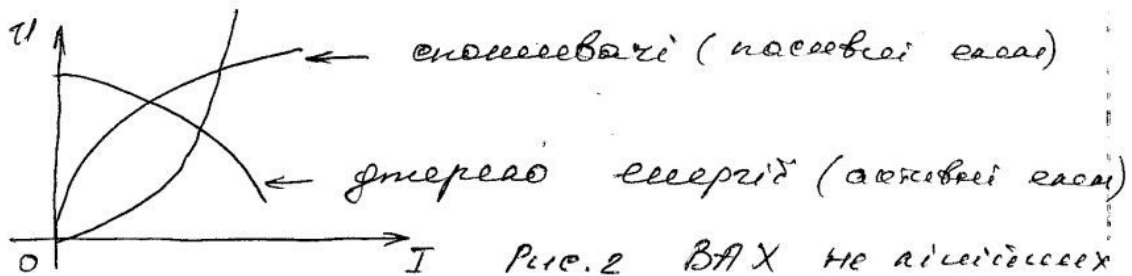 U
споживачі (пасивні елем)
джерело енергії (активні елем)
0 I Рис.2 ВАХ не лінійних